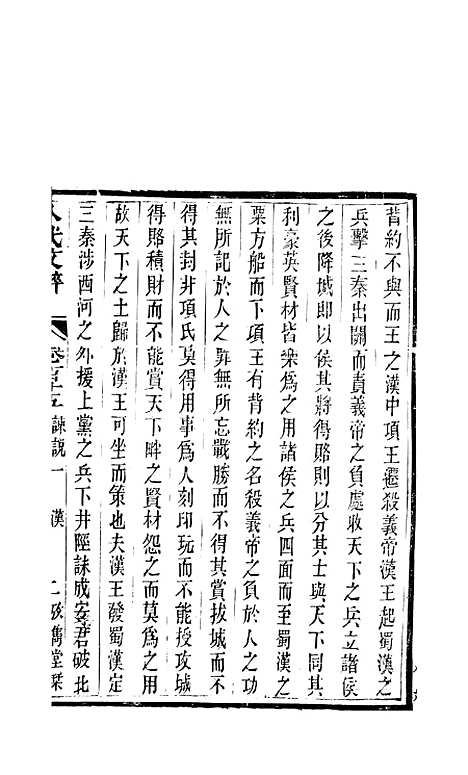 背約不與而王之漢中項王遷殺義帝漢王起蜀漢之
兵擊三秦出關而責義帝之負處收天下之兵立諸侯
之後降城即以侯其將得賂則以分其士與天下同其
利豪英賢材皆樂爲之用諸侯之兵四面而至蜀漢之
粟方船而下項王有背約之名殺義帝之負於人之功
無所記於人之罪無所忘戰勝而不得其賞拔城而不
得其封非項氏莫得用事爲人刻印玩而不能授攻城
得賂積財而不能賞天下畔之賢材怨之而莫爲之用
故天下之士歸於漢王可坐而策也夫漢王發蜀漢定
三秦涉西河之外援上黨之兵下井陘誅成安君破北
八代文粹 卷百五 諫說一 漢